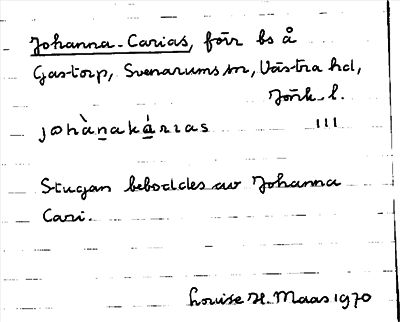 Johanna-Carias, förr bs å
Gastorp, Svenarums sn, Västra hd,
Jönk. l.
johànakárias III
Stugan beboddes av Johanna
Cari.
Louise H. Maas 1970